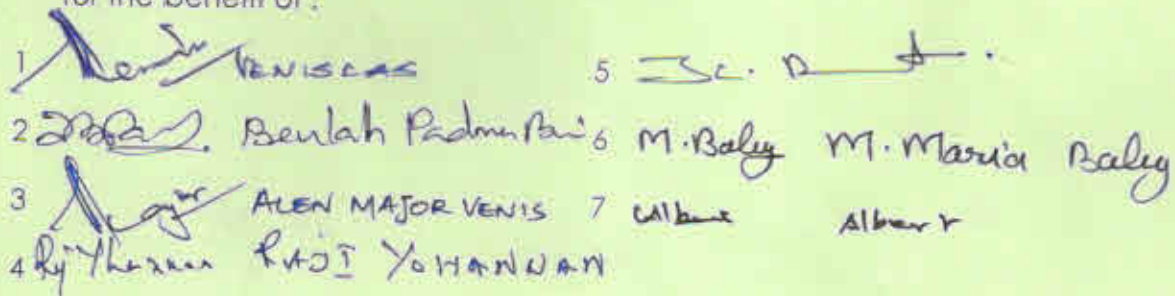 for the benefit of :
1 VENISLAS
2 Beulah Padma Bai
3 ALEN MAJOR VENIS
4 RAJI YOHANNAN
5
6 M. Baley M. Maria Baley
7 Albert Albert